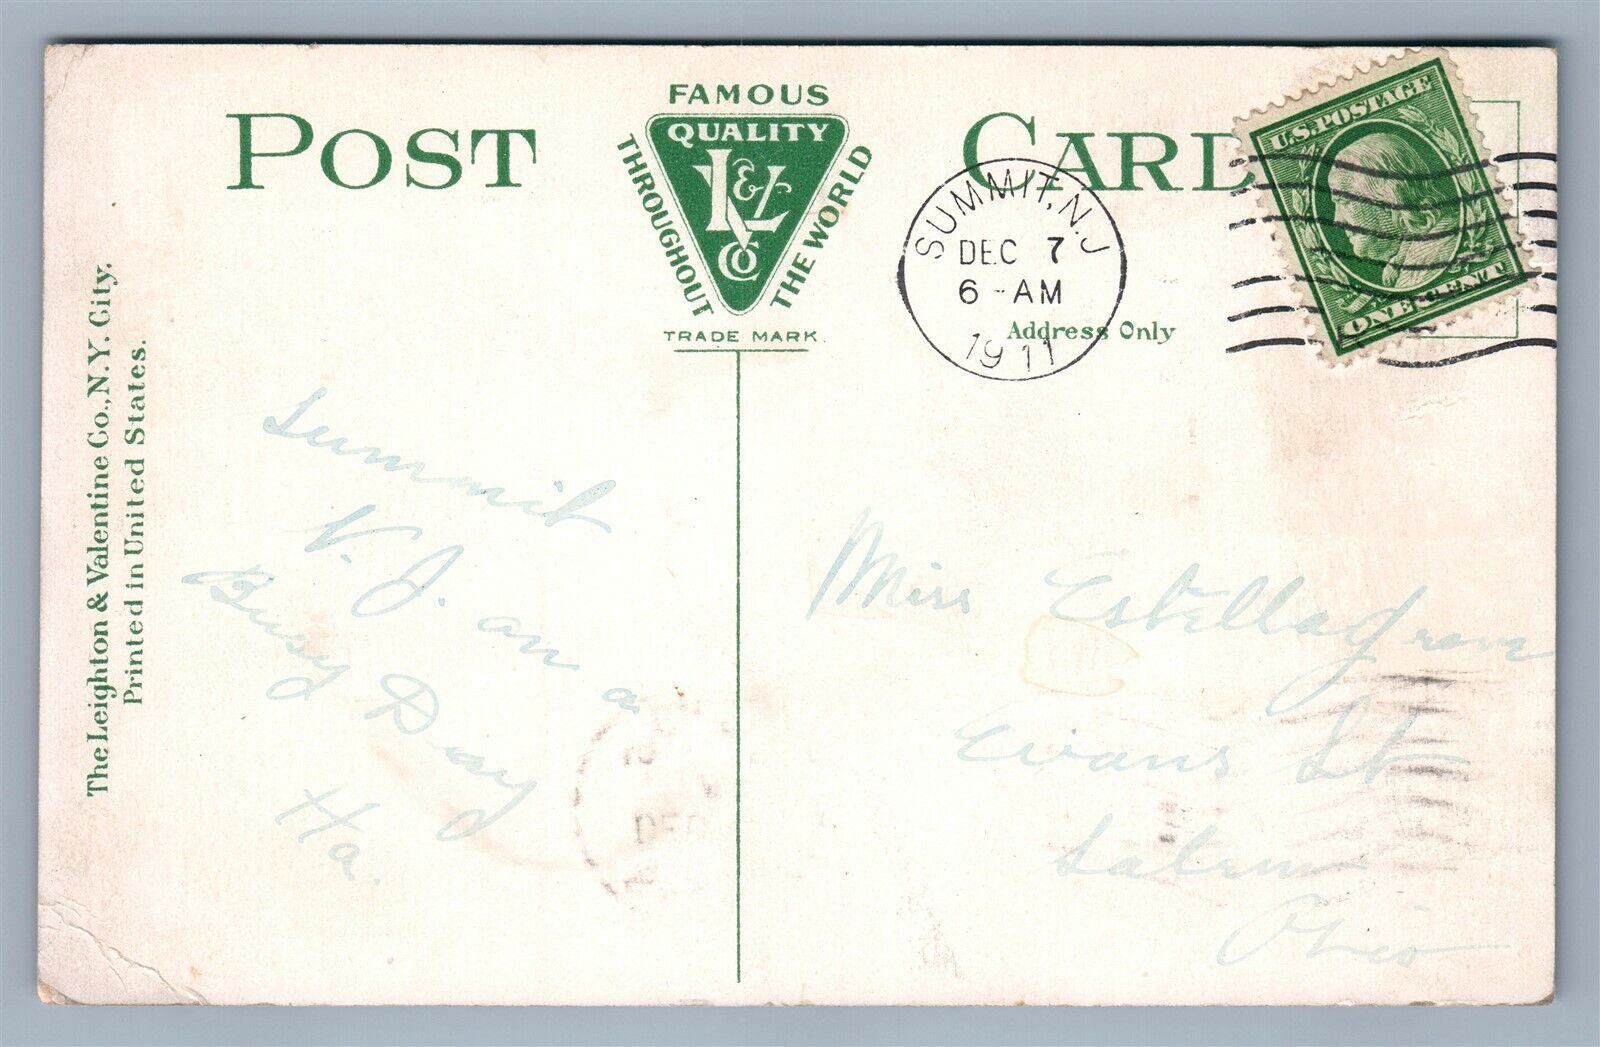 POST CARD
FAMOUS
QUALITY
THROUGHOUT
THE WORLD
L&V
Co
TRADE MARK.
SUMMIT, N.J.
DEC 7
6-AM
1911
Address Only
U.S. POSTAGE
ONE CENT
The Leighton & Valentine Co., N.Y. City.
Printed in United States.
Summit
N. J. on a
Busy Day
Ha.
Miss Estella Grove
Evans St
Salem
Ohio
DEC